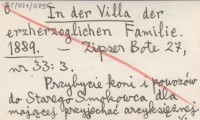 In der Villa der
erzherzoglichen Familie.
1889. – Zipser Bote 27,
nr 33: 3.
Przybycie koni i powozów
do Starego Smokowca dla
mającej przyjechać arcyksiężnej